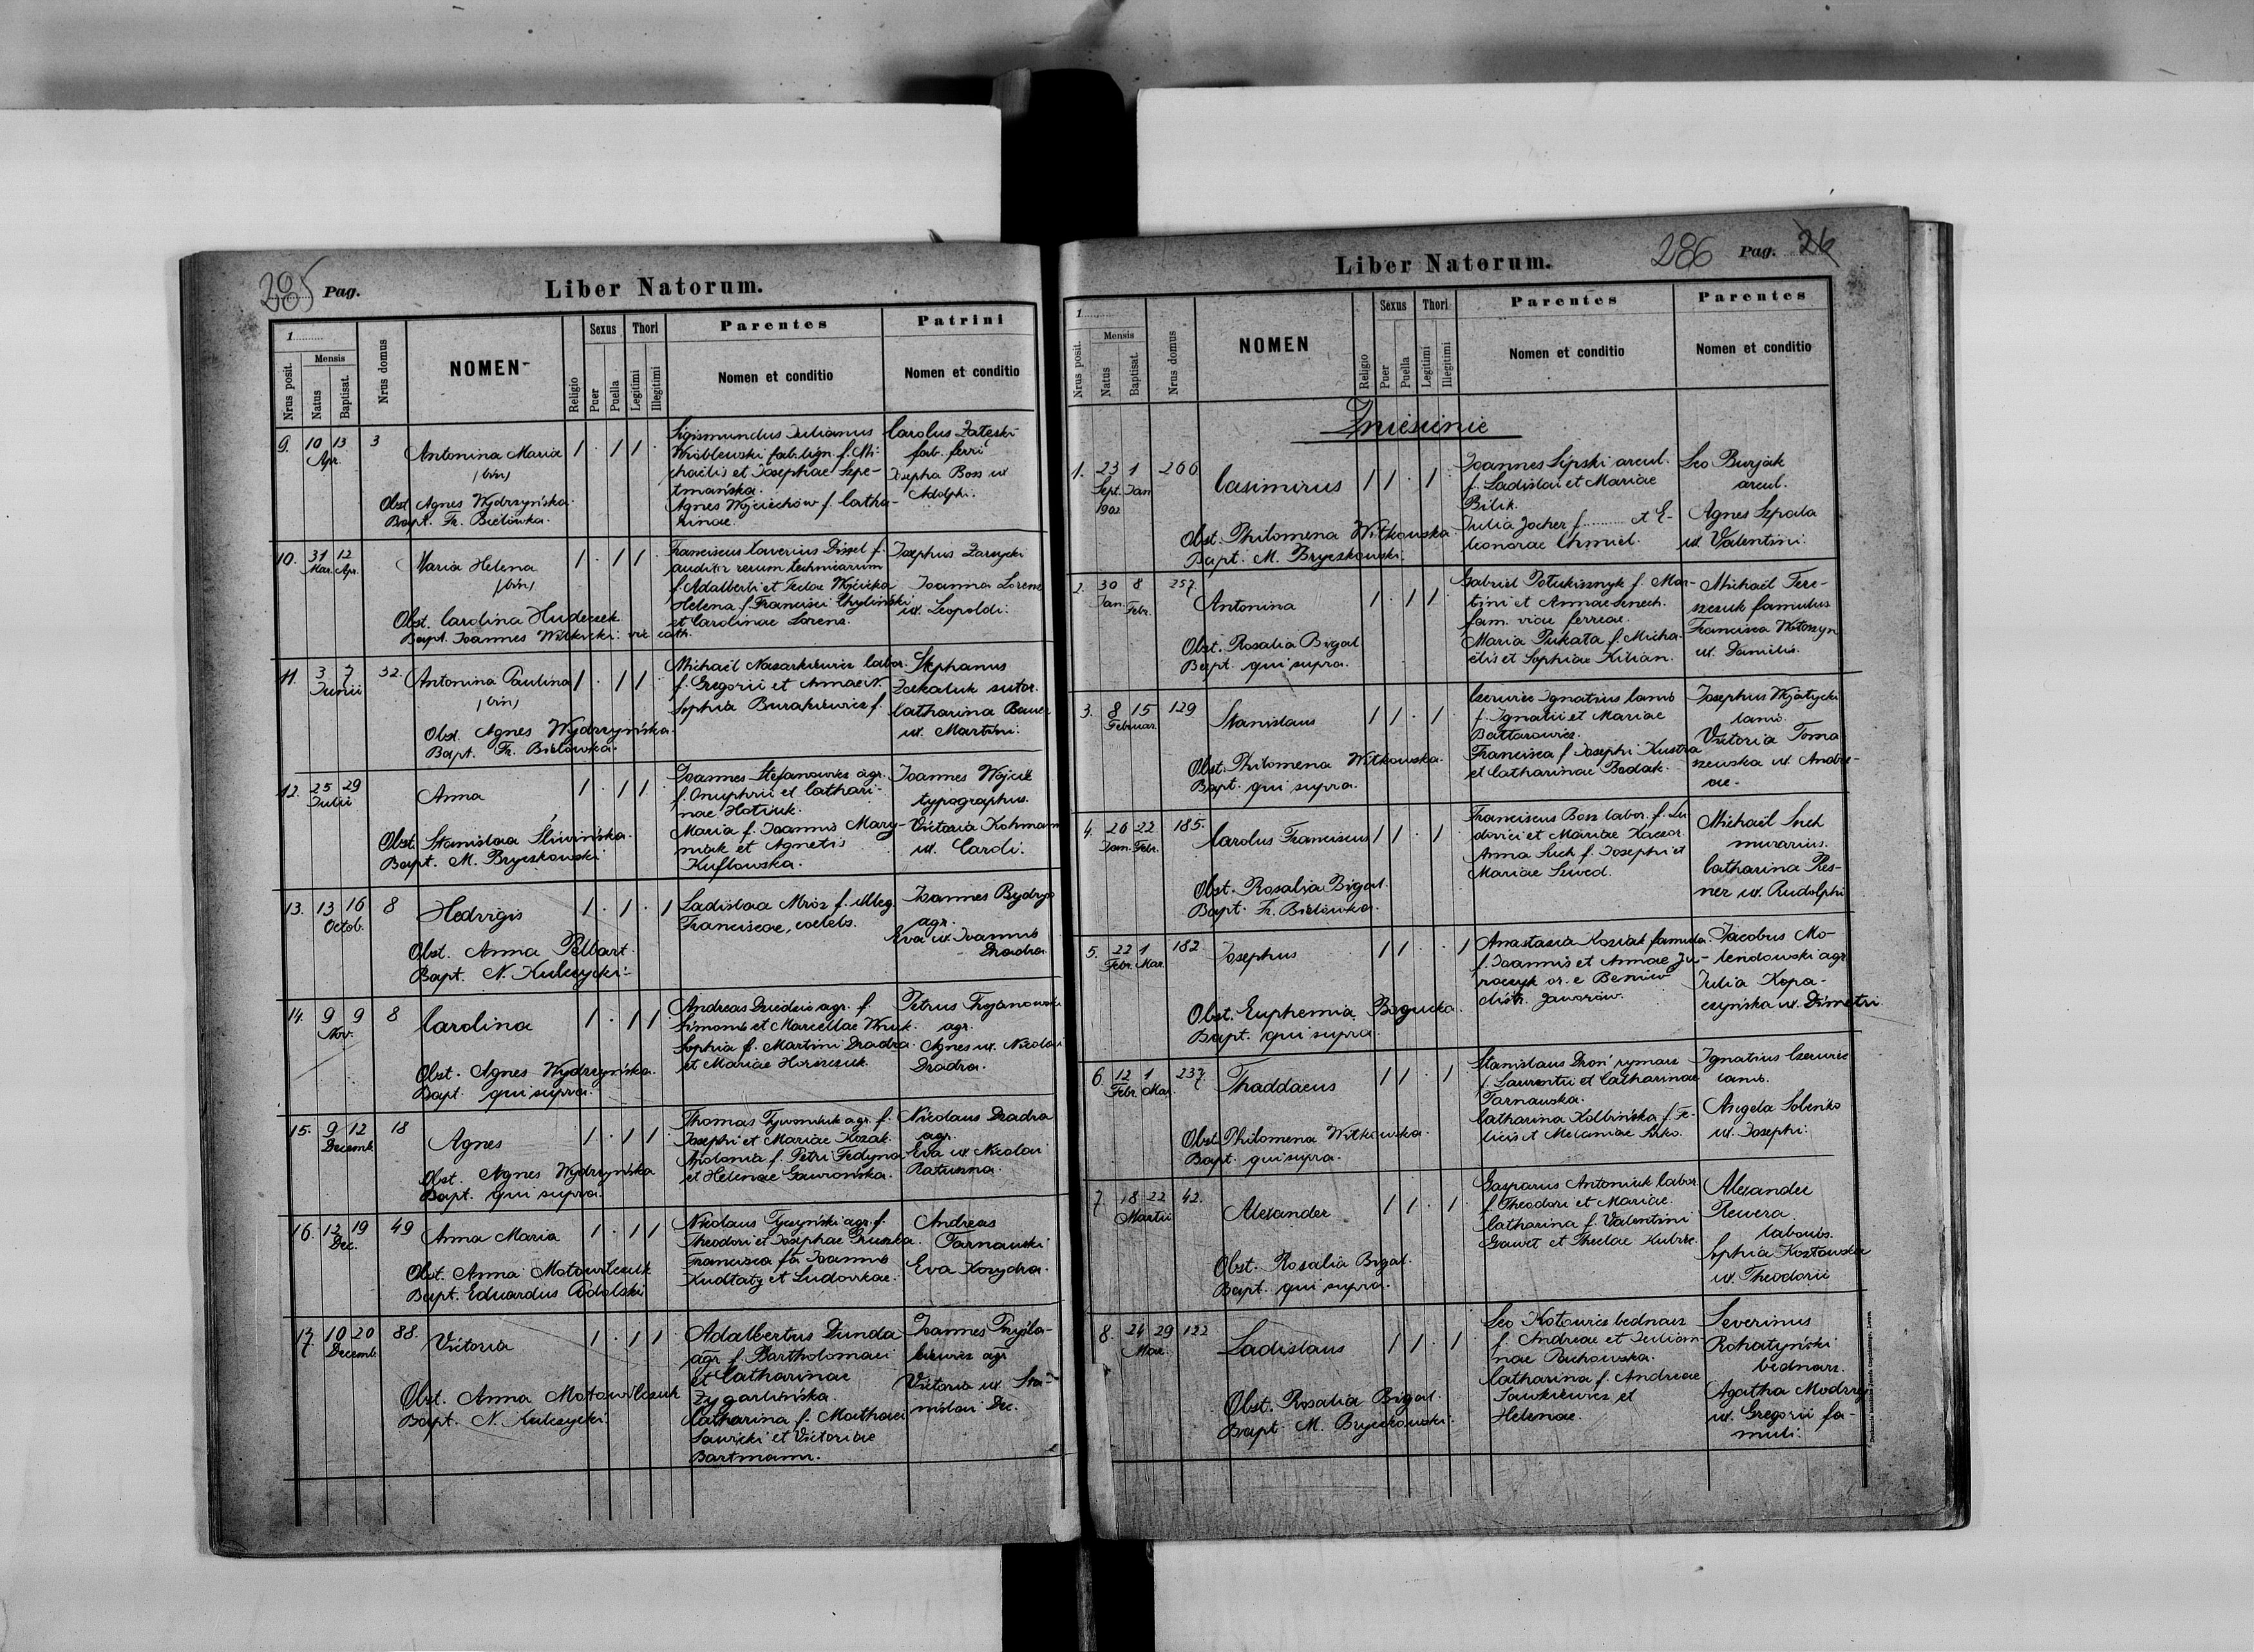 285 Pag.
Liber Natorum.
1
Nrus posit.
Mensis
Natus
Baptisat.
Nrus domus
NOMEN
Religio
Sexus
Puer
Puella
Thori
Legitimi
Illegitimi
Parentes
Nomen et conditio
Patrini
Nomen et conditio
9. 10 13 3
Apr.
Antonina Maria
(bin)
Obst. Agnes Wydrzyńska.
Bapt. Fr. Bielówka.
Sigismundus Julianus
Wróblewski fab. lign. f. Mi-
chaëlis et Josephae Szpe-
tmańska.
Agnes Wojciechów f. Catha-
rinae.
Carolus Załęski
fab. ferri
Josepha Boss ux
Adolphi.
10. 31 12
Mar. Apr.
Maria Helena
(bin)
Obst. Carolina Hudeczek
Bapt. Joannes Witkicki: vic cath.
Franciscus Xaverius Dissel f.
auditor rerum technicarum
f. Adalberti et Teclae Wojcicka
Helena f. Francisci Chyliński
et Carolinae Lorenz.
Josephus Zarzycki
Joanna Lorenz
ux. Leopoldi.
11. 3 7 32.
Junii
Antonina Paulina
(bin)
Obst. Agnes Wydrzyńska.
Bapt. Fr. Bielówka.
Michaël Nazarkiewicz labor.
f. Gregorii et Annae N.
Sophia Burakiewicz f.
Stephanus
Zaekaluk sutor.
Catharina Bauer
ux. Martini.
12. 25 29
Julii
Anna
Obst. Stanislaa Śliwińska.
Bapt. M. Bryczkowski
Joannes Stefanowicz agr.
f. Onuphrii et Cathari-
nae Hotiuk.
Maria f. Joannis Mary-
niak et Agnetis
Kuflowska.
Joannes Wójcik
typographus.
Victoria Kohmann
ux. Caroli.
13. 13 16 8
Octob.
Hedvigis
Obst. Anna Pelbart.
Bapt. N. Kulczycki.
Ladislaa Mróz f. illeg.
Franciscae, coelebs.
Joannes Bydryj
agr.
Eva ux. Joannis
Dzadra
14. 9 9 8
Nov.
Carolina
Obst. Agnes Wydrzyńska.
Bapt. qui supra.
Andreas Dziedzic agr. f.
Simonis et Marcellae Wnuk.
Sophia f. Martini Dzadra.
et Mariae Horszczuk.
Petrus Trojanowski
agr.
Agnes ux. Nicolai
Dzadra.
15. 9 12 18
Decemb.
Agnes
Obst. Agnes Wydrzyńska
Bapt. qui supra.
Thomas Tywoniuk agr. f.
Josephi et Mariae Kozak.
Apolonia f. Petri Fedyna
et Helenae Gawrońska.
Nicolaus Dzadra
agr.
Eva ux. Nicolai
Ratuszna.
16. 12 19 49
Dec.
Anna Maria
Obst. Anna Motowilczuk
Bapt. Eduardus Podolski
Nicolaus Tyczyński agr. f.
Theodori et Josephae Gruszka.
Francisca fa Joannis
Kudłaty et Ludovicae.
Andreas
Tarnawski
Eva Kozydra.
17. 10 20 88.
Decemb.
Victoria
Obst. Anna Motowilczuk
Bapt. N. Kulczycki.
Adalbertus Dunda
agr. f. Bartholomaei
et Catharinae
Zygarlińska.
Catharina f. Mathaei
Sawicki et Victoriae
Bartmann.
Joannes Przyśla-
kiewicz agr
Victoria ux. Sta-
nislai Dec.
286 Pag. 26
Liber Natorum.
1
Nrus posit.
Mensis
Natus
Baptisat.
Nrus domus
NOMEN
Religio
Sexus
Puer
Puella
Thori
Legitimi
Illegitimi
Parentes
Nomen et conditio
Parentes
Nomen et conditio
Zniesienie
1. 23 1 266
Sept. Jan
1902
Casimirus
Obst. Philomena Witkowska.
Bapt. M. Bryczkowski.
Joannes Lipski arcul.
f. Ladislai et Mariae
Bilik.
Julia Jocher f. et E-
leonorae Chmiel.
Leo Burjak
arcul.
Agnes Szpala
ux. Valentini.
2. 30 8 257.
Jan. Febr.
Antonina
Obst. Rosalia Bigal
Bapt. qui supra.
Gabriel Potukisznyk f. Mar-
tini et Annae Senech.
fam. viae ferreae.
Maria Pukała f. Micha-
ëlis et Sophiae Kilian.
Michaël Tere-
szczuk famulus
Francisca Wołoszyn
ux. Danielis.
3. 8 15 129
Februar.
Stanislaus
Obst. Philomena Witkowska.
Bapt. qui supra.
Czerwiec Ignatius lanio
f. Ignatii et Mariae
Battarowicz.
Francisca f. Josephi Kustra
et Catharinae Badak.
Josephus Wojatycki
lanio.
Victoria Toma
szewska ux. Andre-
ae.
4. 26 22 185.
Jan. Febr.
Carolus Franciscus
Obst. Rosalia Bigal.
Bapt. Fr. Bielówka.
Franciscus Boss labor. f. Lu
dovici et Mariae Kaczor.
Anna Such f. Josephi et
Mariae Szwed.
Michaël Such
murarius.
Catharina Res-
ner ux. Rudolphi
5. 22 1 182.
Febr. Mar.
Josephus
Obst. Euphemia Bogucka.
Bapt. qui supra
Anastasia Koziak famula.
f. Joannis et Annae Ju-
raczyk or. e Beniów
distr. Jaworów.
Jacobus Mo-
lendowski agr
Julia Kopa-
czyńska ux. Dimetri
6. 12 1 237.
Febr. Mar.
Thaddaeus
Obst. Philomena Witkowska.
Bapt. qui supra.
Stanislaus Droń rymarz
f. Laurentii et Catharinae
Tarnawska.
Catharina Kolbińska f. Fe-
licis et Melaniae Sitko.
Ignatius Czerwiec
lanio.
Angela Sobeńko
ux. Josephi.
7. 18 22 42.
Martii
Alexander
Obst. Rosalia Bigal.
Bapt. qui supra.
Gasparus Antoniuk labor.
f. Theodori et Mariae.
Catharina f. Valentini
Gaweł et Theclae Kubie.
Alexander
Rewera
laboris.
Sophia Kozłowska
ux. Theodorii
8. 24 29 122
Mar.
Ladislaus
Obst. Rosalia Bigal.
Bapt M. Bryczkowski.
Leo Kotowicz bednarz
f. Andreae et Julian-
nae Pachowska.
Catharina f. Andreae
Sawkiewicz et
Helenae.
Severinus
Rohatyński
bednarz.
Agatha Modrzej
ux. Gregorii fa-
muli.